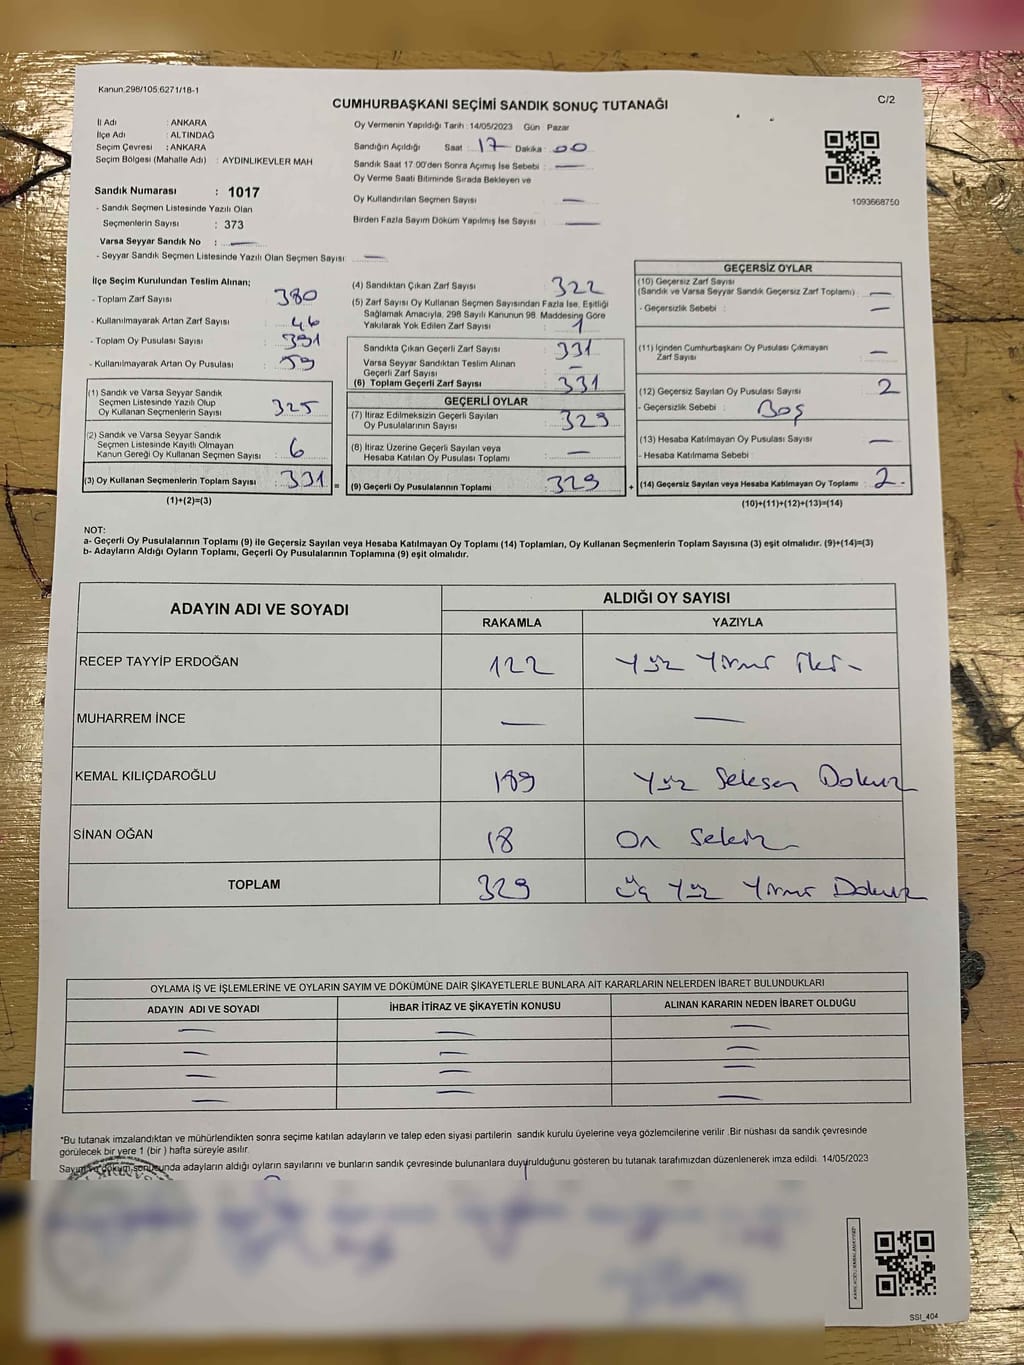 Kanun:298/105.6271/18-1
C/2
CUMHURBAŞKANI SEÇİMİ SANDIK SONUÇ TUTANAĞI
İl Adı : ANKARA
İlçe Adı : ALTINDAĞ
Seçim Çevresi : ANKARA
Seçim Bölgesi (Mahalle Adı) : AYDINLIKEVLER MAH
Sandık Numarası : 1017
- Sandık Seçmen Listesinde Yazılı Olan
Seçmenlerin Sayısı : 373
Varsa Seyyar Sandık No : —
- Seyyar Sandık Seçmen Listesinde Yazılı Olan Seçmen Sayısı: —
Oy Vermenin Yapıldığı Tarih : 14/05/2023 Gün Pazar
Sandığın Açıldığı Saat : 17 Dakika : 00
Sandık Saat 17:00'den Sonra Açmış İse Sebebi : —
Oy Verme Saati Bitiminde Sırada Bekleyen ve
Oy Kullandırılan Seçmen Sayısı —
Birden Fazla Sayım Döküm Yapılmış İse Sayısı : —
1093668750
İlçe Seçim Kurulundan Teslim Alınan;
- Toplam Zarf Sayısı : 380
- Kullanılmayarak Artan Zarf Sayısı : 46
- Toplam Oy Pusulası Sayısı : 391
- Kullanılmayarak Artan Oy Pusulası : 59
(1) Sandık ve Varsa Seyyar Sandık
Seçmen Listesinde Yazılı Olup
Oy Kullanan Seçmenlerin Sayısı : 325
(2) Sandık ve Varsa Seyyar Sandık
Seçmen Listesinde Kayıtlı Olmayan
Kanun Gereği Oy Kullanan Seçmen Sayısı : 6
(3) Oy Kullanan Seçmenlerin Toplam Sayısı : 331 =
(1)+(2)=(3)
(4) Sandıktan Çıkan Zarf Sayısı : 322
(5) Zarf Sayısı Oy Kullanan Seçmen Sayısından Fazla İse, Eşitliği
Sağlamak Amacıyla, 298 Sayılı Kanunun 98. Maddesine Göre
Yakılarak Yok Edilen Zarf Sayısı : 1
Sandıkta Çıkan Geçerli Zarf Sayısı : 331
Varsa Seyyar Sandıktan Teslim Alınan
Geçerli Zarf Sayısı : —
(6) Toplam Geçerli Zarf Sayısı : 331
GEÇERLİ OYLAR
(7) İtiraz Edilmeksizin Geçerli Sayılan
Oy Pusulalarının Sayısı : 329
(8) İtiraz Üzerine Geçerli Sayılan veya
Hesaba Katılan Oy Pusulası Toplamı : —
(9) Geçerli Oy Pusulalarının Toplamı : 329 +
GEÇERSİZ OYLAR
(10) Geçersiz Zarf Sayısı
(Sandık ve Varsa Seyyar Sandık Geçersiz Zarf Toplamı) : —
- Geçersizlik Sebebi : —
(11) İçinden Cumhurbaşkanı Oy Pusulası Çıkmayan
Zarf Sayısı : —
(12) Geçersiz Sayılan Oy Pusulası Sayısı : 2
- Geçersizlik Sebebi : Boş
(13) Hesaba Katılmayan Oy Pusulası Sayısı : —
- Hesaba Katılmama Sebebi :
(14) Geçersiz Sayılan veya Hesaba Katılmayan Oy Toplamı : 2.
(10)+(11)+(12)+(13)=(14)
NOT:
a- Geçerli Oy Pusulalarının Toplamı (9) ile Geçersiz Sayılan veya Hesaba Katılmayan Oy Toplamı (14) Toplamları, Oy Kullanan Seçmenlerin Toplam Sayısına (3) eşit olmalıdır. (9)+(14)=(3)
b- Adayların Aldığı Oyların Toplamı, Geçerli Oy Pusulalarının Toplamına (9) eşit olmalıdır.
ADAYIN ADI VE SOYADI ALDIĞI OY SAYISI
RAKAMLA YAZIYLA
RECEP TAYYİP ERDOĞAN 122 Yüz Yirmi İki -
MUHARREM İNCE — —
KEMAL KILIÇDAROĞLU 189 Yüz Seksen Dokuz
SİNAN OĞAN 18 On Sekiz
TOPLAM 329 Üç Yüz Yirmi Dokuz
OYLAMA İŞ VE İŞLEMLERİNE VE OYLARIN SAYIM VE DÖKÜMÜNE DAİR ŞİKAYETLERLE BUNLARA AİT KARARLARIN NELERDEN İBARET BULUNDUKLARI
ADAYIN ADI VE SOYADI İHBAR İTİRAZ VE ŞİKAYETİN KONUSU ALINAN KARARIN NEDEN İBARET OLDUĞU
— — —
— — —
— — —
— — —
*Bu tutanak imzalandıktan ve mühürlendikten sonra seçime katılan adayların ve talep eden siyasi partilerin sandık kurulu üyelerine veya gözlemcilerine verilir .Bir nüshası da sandık çevresinde
görülecek bir yere 1 (bir ) hafta süreyle asılır.
Sayım ve döküm sonucunda adayların aldığı oyların sayılarını ve bunların sandık çevresinde bulunanlara duyurulduğunu gösteren bu tutanak tarafımızdan düzenlenerek imza edildi. 14/05/2023
SSI_404